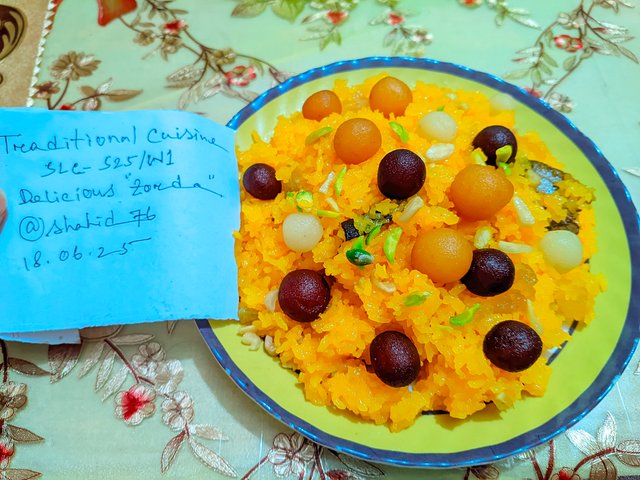 Treaditional Cuisine
SLC-S25/W1
Delicious "Zorda"
@shahid_76
18.06.25